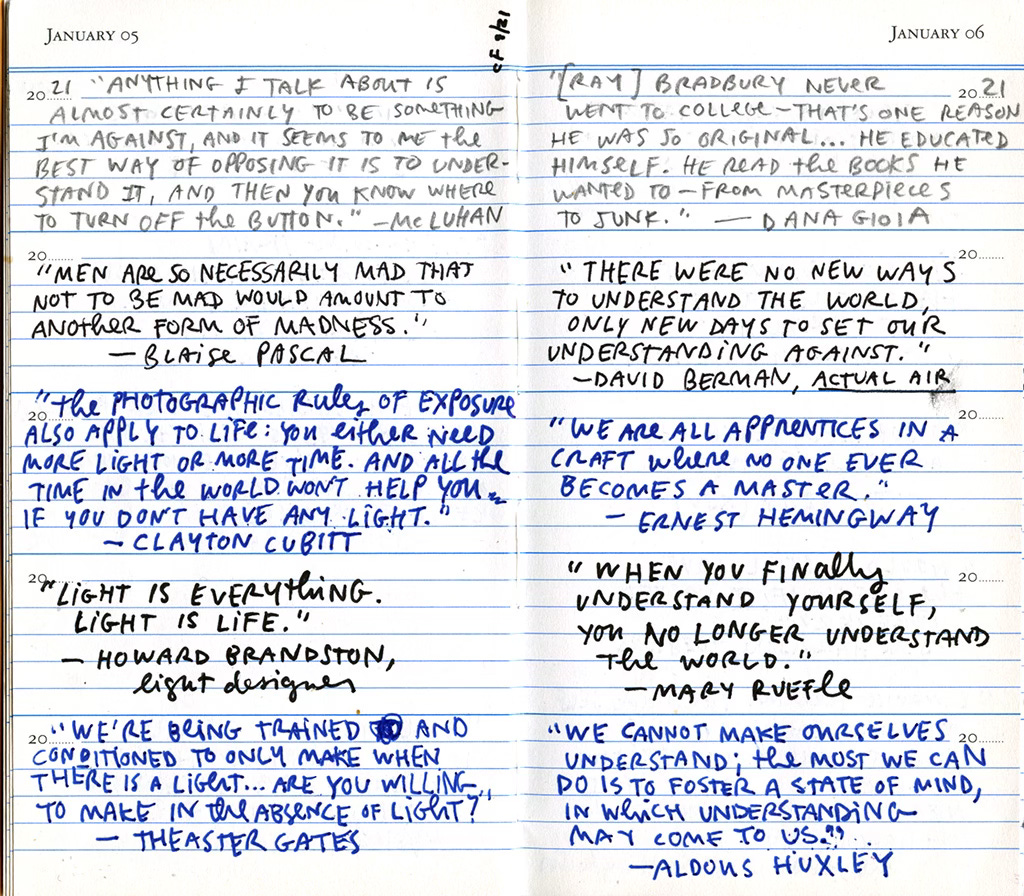 JANUARY 05
2021 "ANYTHING I TALK ABOUT IS
ALMOST CERTAINLY TO BE SOMETHING
I'M AGAINST, AND IT SEEMS TO ME the
BEST WAY OF OPPOSING IT IS TO UNDER-
STAND IT, AND THEN YOU KNOW WHERE
TO TURN OFF the BUTTON." —McLUHAN
20
"MEN ARE SO NECESSARILY MAD THAT
NOT TO BE MAD WOULD AMOUNT TO
ANOTHER FORM OF MADNESS."
— BLAISE PASCAL
"the PHOTOGRAPHIC RULES OF EXPOSURE
20
ALSO APPLY TO LIFE: YOU EITHER NEED
MORE LIGHT OR MORE TIME. AND ALL the
TIME IN the WORLD WON'T HELP YOU
IF YOU DON'T HAVE ANY LIGHT."
— CLAYTON CUBITT
20
"LIGHT IS EVERYTHING.
LIGHT IS LIFE."
— HOWARD BRANDSTON,
light designer
"WE'RE BEING TRAINED AND
20
CONDITIONED TO ONLY MAKE WHEN
THERE IS A LIGHT... ARE YOU WILLING
TO MAKE IN the ABSENCE OF LIGHT?"
— THEASTER GATES
CF 9/21
JANUARY 06
"[RAY] BRADBURY NEVER 2021
WENT TO COLLEGE — THAT'S ONE REASON
HE WAS SO ORIGINAL... HE EDUCATED
HIMSELF. HE READ the BOOKS HE
WANTED TO — FROM MASTERPIECES
TO JUNK." — DANA GIOIA
20
"THERE WERE NO NEW WAYS
TO UNDERSTAND THE WORLD,
ONLY NEW DAYS TO SET OUR
UNDERSTANDING AGAINST."
—DAVID BERMAN, ACTUAL AIR
20
"WE ARE ALL APPRENTICES IN A
CRAFT WHERE NO ONE EVER
BECOMES A MASTER."
— ERNEST HEMINGWAY
"WHEN YOU FINALLY 20
UNDERSTAND YOURSELF,
YOU NO LONGER UNDERSTAND
the WORLD."
—MARY RUEFLE
"WE CANNOT MAKE OURSELVES 20
UNDERSTAND; the MOST WE CAN
DO IS TO FOSTER A STATE OF MIND,
IN WHICH UNDERSTANDING
MAY COME TO US."
—ALDOUS HUXLEY